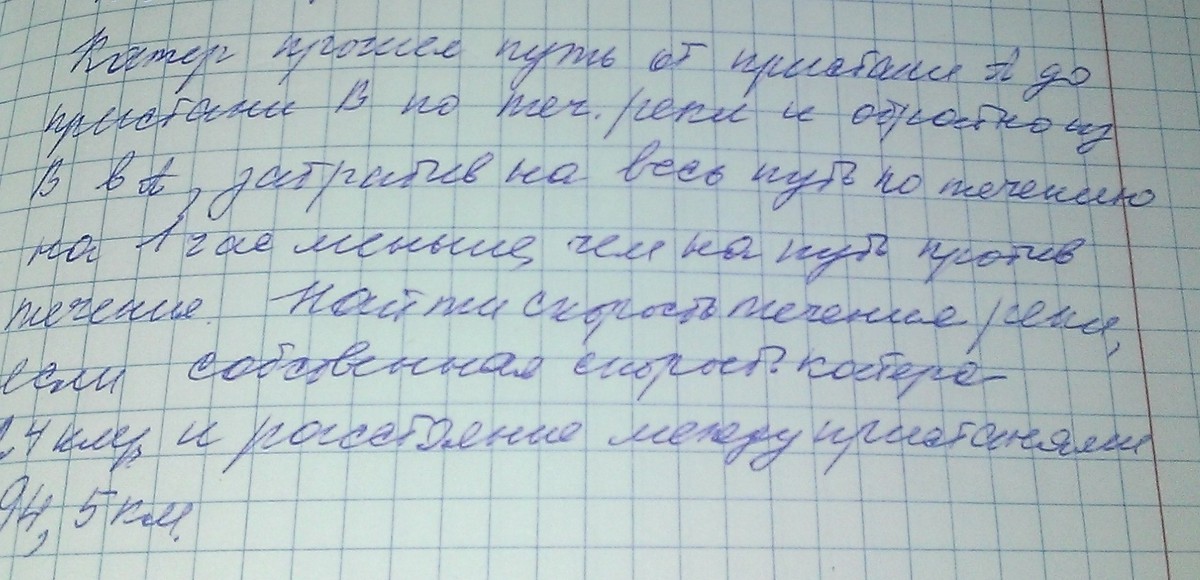 Катер прошел путь от пристани А до
пристани В по теч. реки и обратно из
В в А, затратив на весь путь по течению
на 1 час меньше, чем на путь против
течения. Найти скорость течения реки,
если собственная скорость катера
24 км/ч, и расстояние между пристанями
94,5 км.